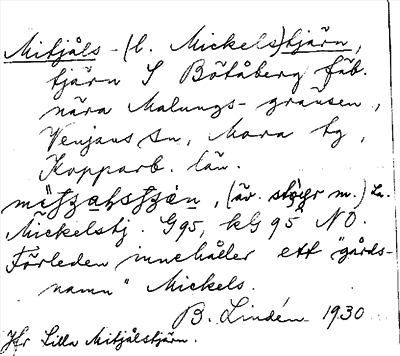 Mitjåls - (l. Mickels)tjärn,
tjärn S Bötåberg fäb.
nära Malungs-gränsen,
Venjans sn, Mora tg,
Kopparb. län.
(äv. m.)
Mickelstj. G95, kG 95 NO.
Förleden innehåller ett "gårds-
namn" Mickels.
B. Lindén 1930
Jfr Lilla Mitjålstjärn.